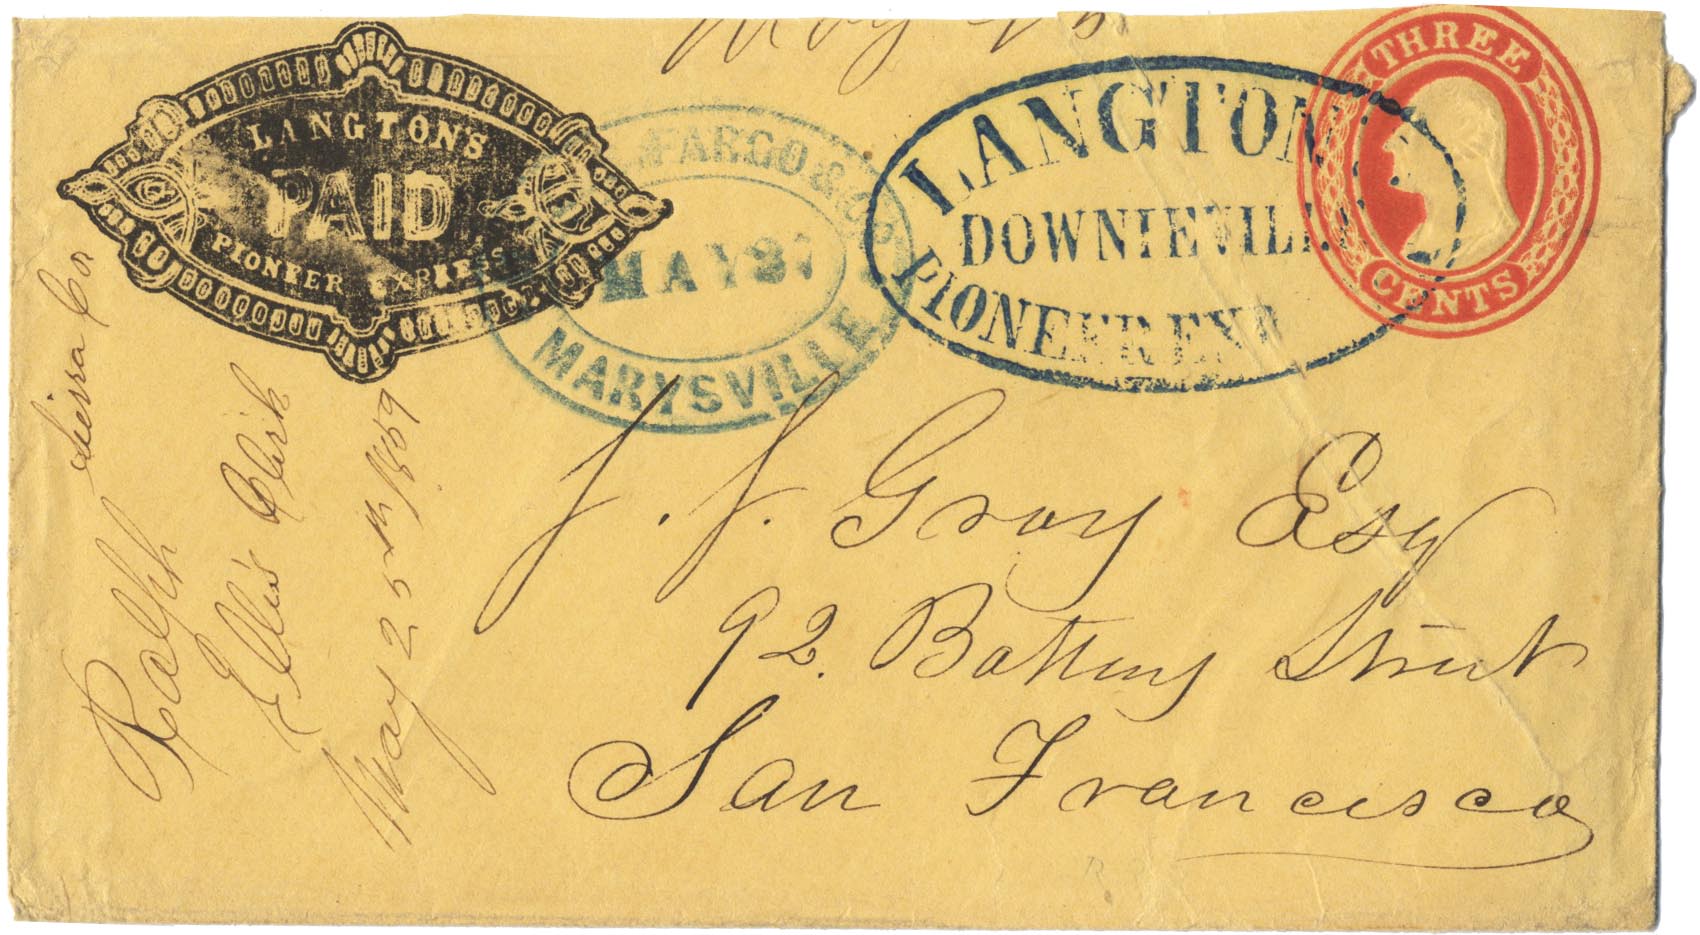 May 25
LANGTON'S
PAID
PIONEER EXPRESS
FARGO & CO
MAY 27
MARYSVILLE
LANGTON'
DOWNIEVILLE
PIONEER EXP
THREE
CENTS
Sierra Co
Ralph
Ellis Clerk
May 25th 1869
J. J. Gray Esq
92. Battery Street
San Francisco